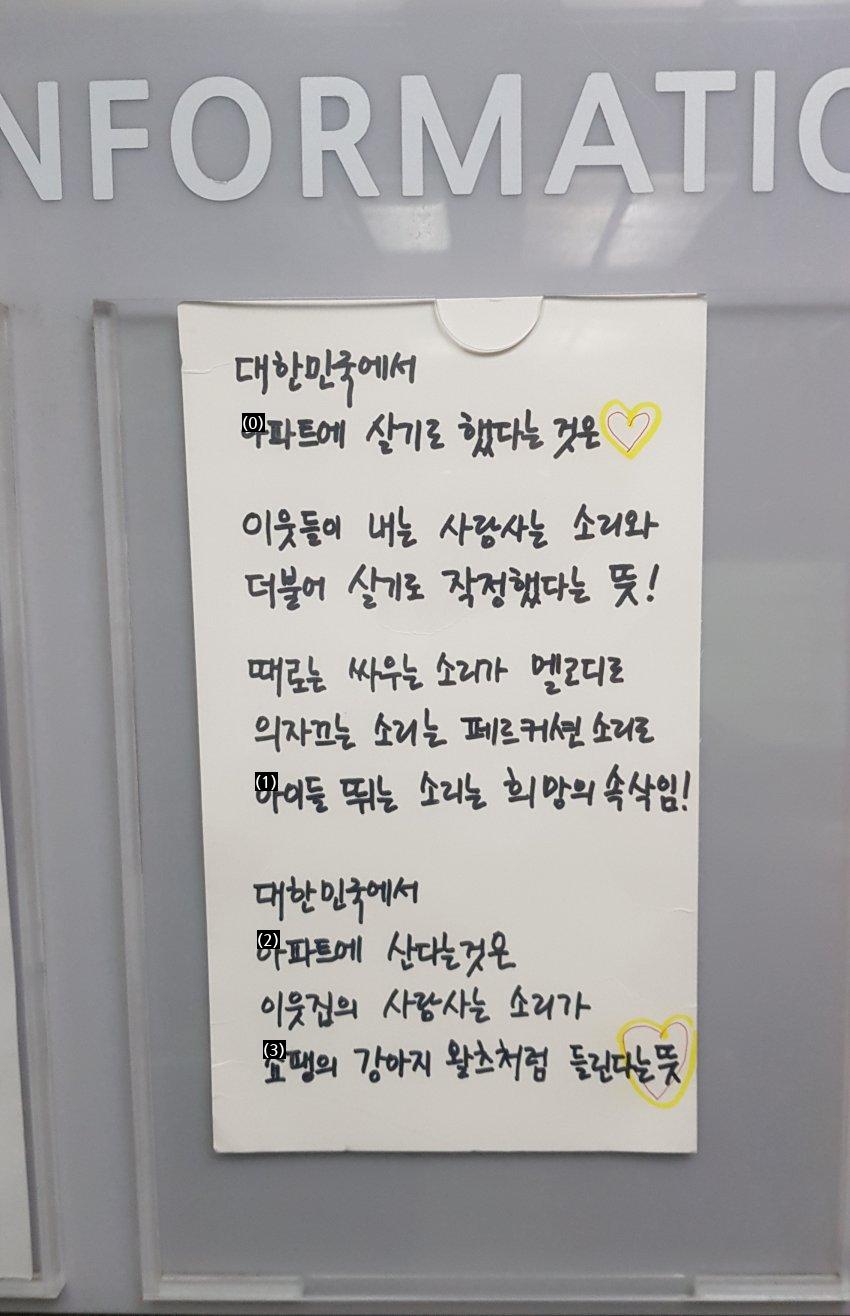 NFORMATIO
대한민국에서
(0)
아파트에 살기로 했다는 것은
이웃들이 내는 사람사는 소리와
더불어 살기로 작정했다는 뜻!
때로는 싸우는 소리가 멜로디로
의자끄는 소리는 페르커션 소리로
(1)
아이들 뛰는 소리는 희망의 속삭임!
대한민국에서
(2)
아파트에 산다는것은
이웃집의 사람사는 소리가
(3)
쇼팽의 강아지 왈츠처럼 들린다는 뜻